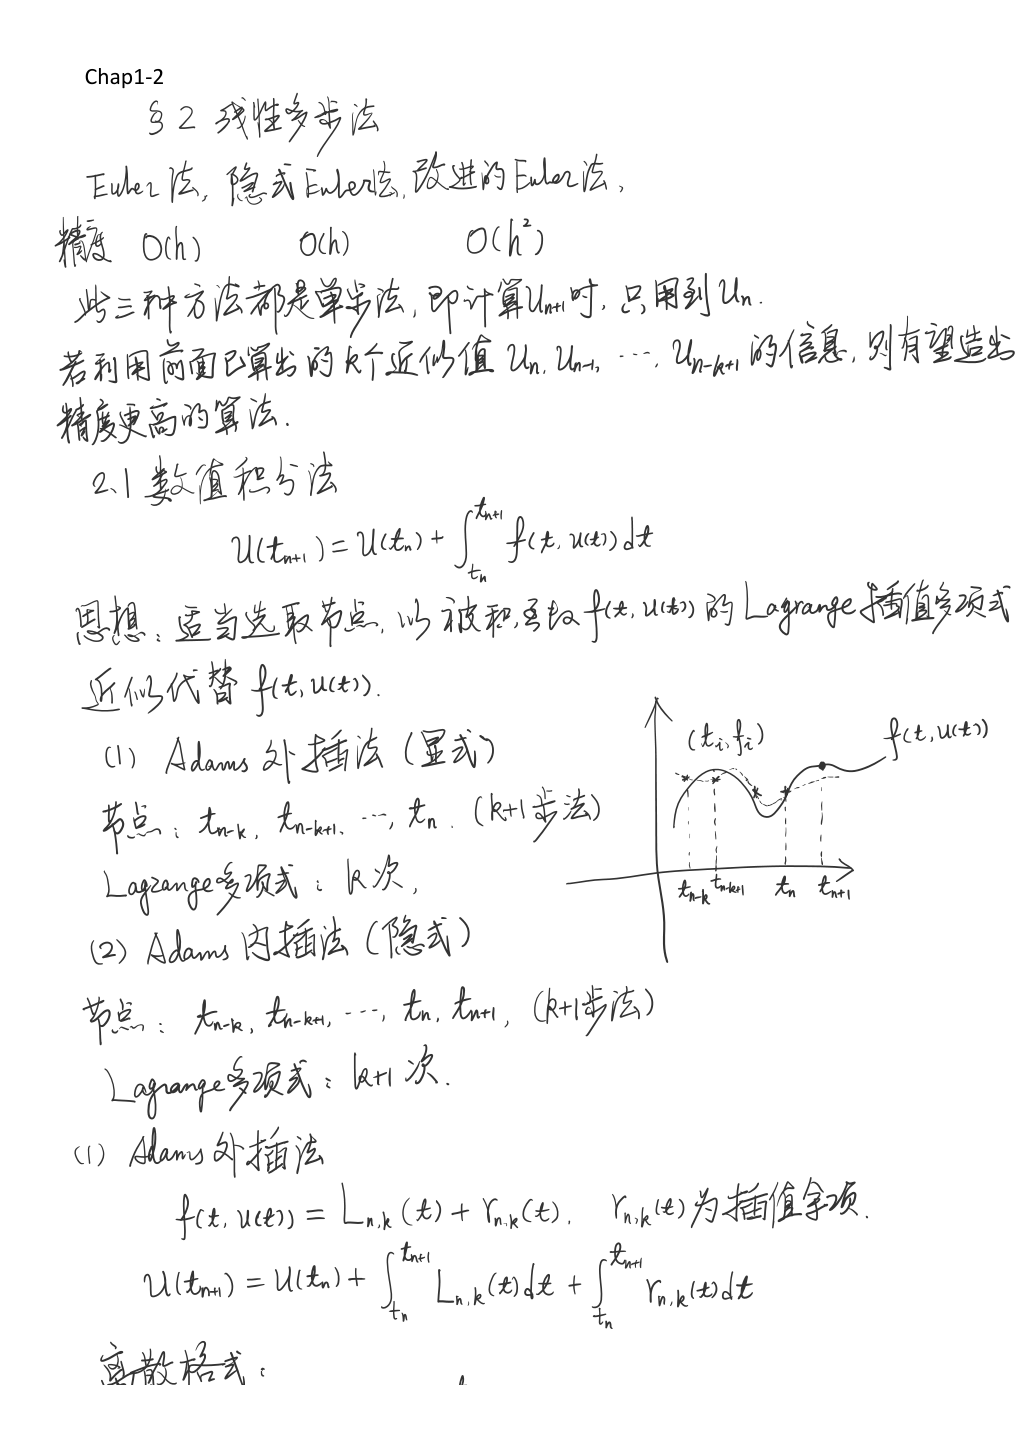 Chap1-2
§2 线性多步法
Euler法, 隐式Euler法, 改进的Euler法,
精度 O(h) O(h) O(h²)
此三种方法都是单步法, 即计算U_{n+1}时, 只用到U_n.
若利用前面已算出的k个近似值 U_n, U_{n-1}, ..., U_{n-k+1} 的信息, 则有望造出
精度更高的算法.
2.1 数值积分法
U(t_{n+1}) = U(t_n) + ∫_{t_n}^{t_{n+1}} f(t, u(t)) dt
思想: 适当选取节点, 以被积函数 f(t, u(t)) 的 Lagrange 插值多项式
近似代替 f(t, u(t)).
(1) Adams 外插法 (显式)
节点: t_{n-k}, t_{n-k+1}, ..., t_n. (k+1步法)
Lagrange多项式: k次,
(t_i, f_i)
f(t, u(t))
t_{n-k} t_{n-k+1} t_n t_{n+1}
(2) Adams 内插法 (隐式)
节点: t_{n-k}, t_{n-k+1}, ..., t_n, t_{n+1}, (k+1步法)
Lagrange多项式: k+1次.
(1) Adams 外插法
f(t, u(t)) = L_{n,k}(t) + r_{n,k}(t). r_{n,k}(t)为插值余项.
U(t_{n+1}) = U(t_n) + ∫_{t_n}^{t_{n+1}} L_{n,k}(t)dt + ∫_{t_n}^{t_{n+1}} r_{n,k}(t)dt
离散格式: